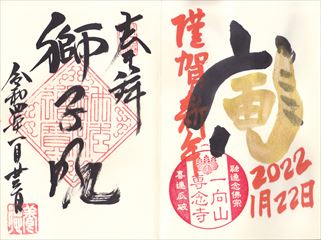 寅
謹賀新年
2022
1月22日
融通念佛宗
一向山
専念寺
喜連瓜破
奉拝
獅子吼
令和四年一月廿二日